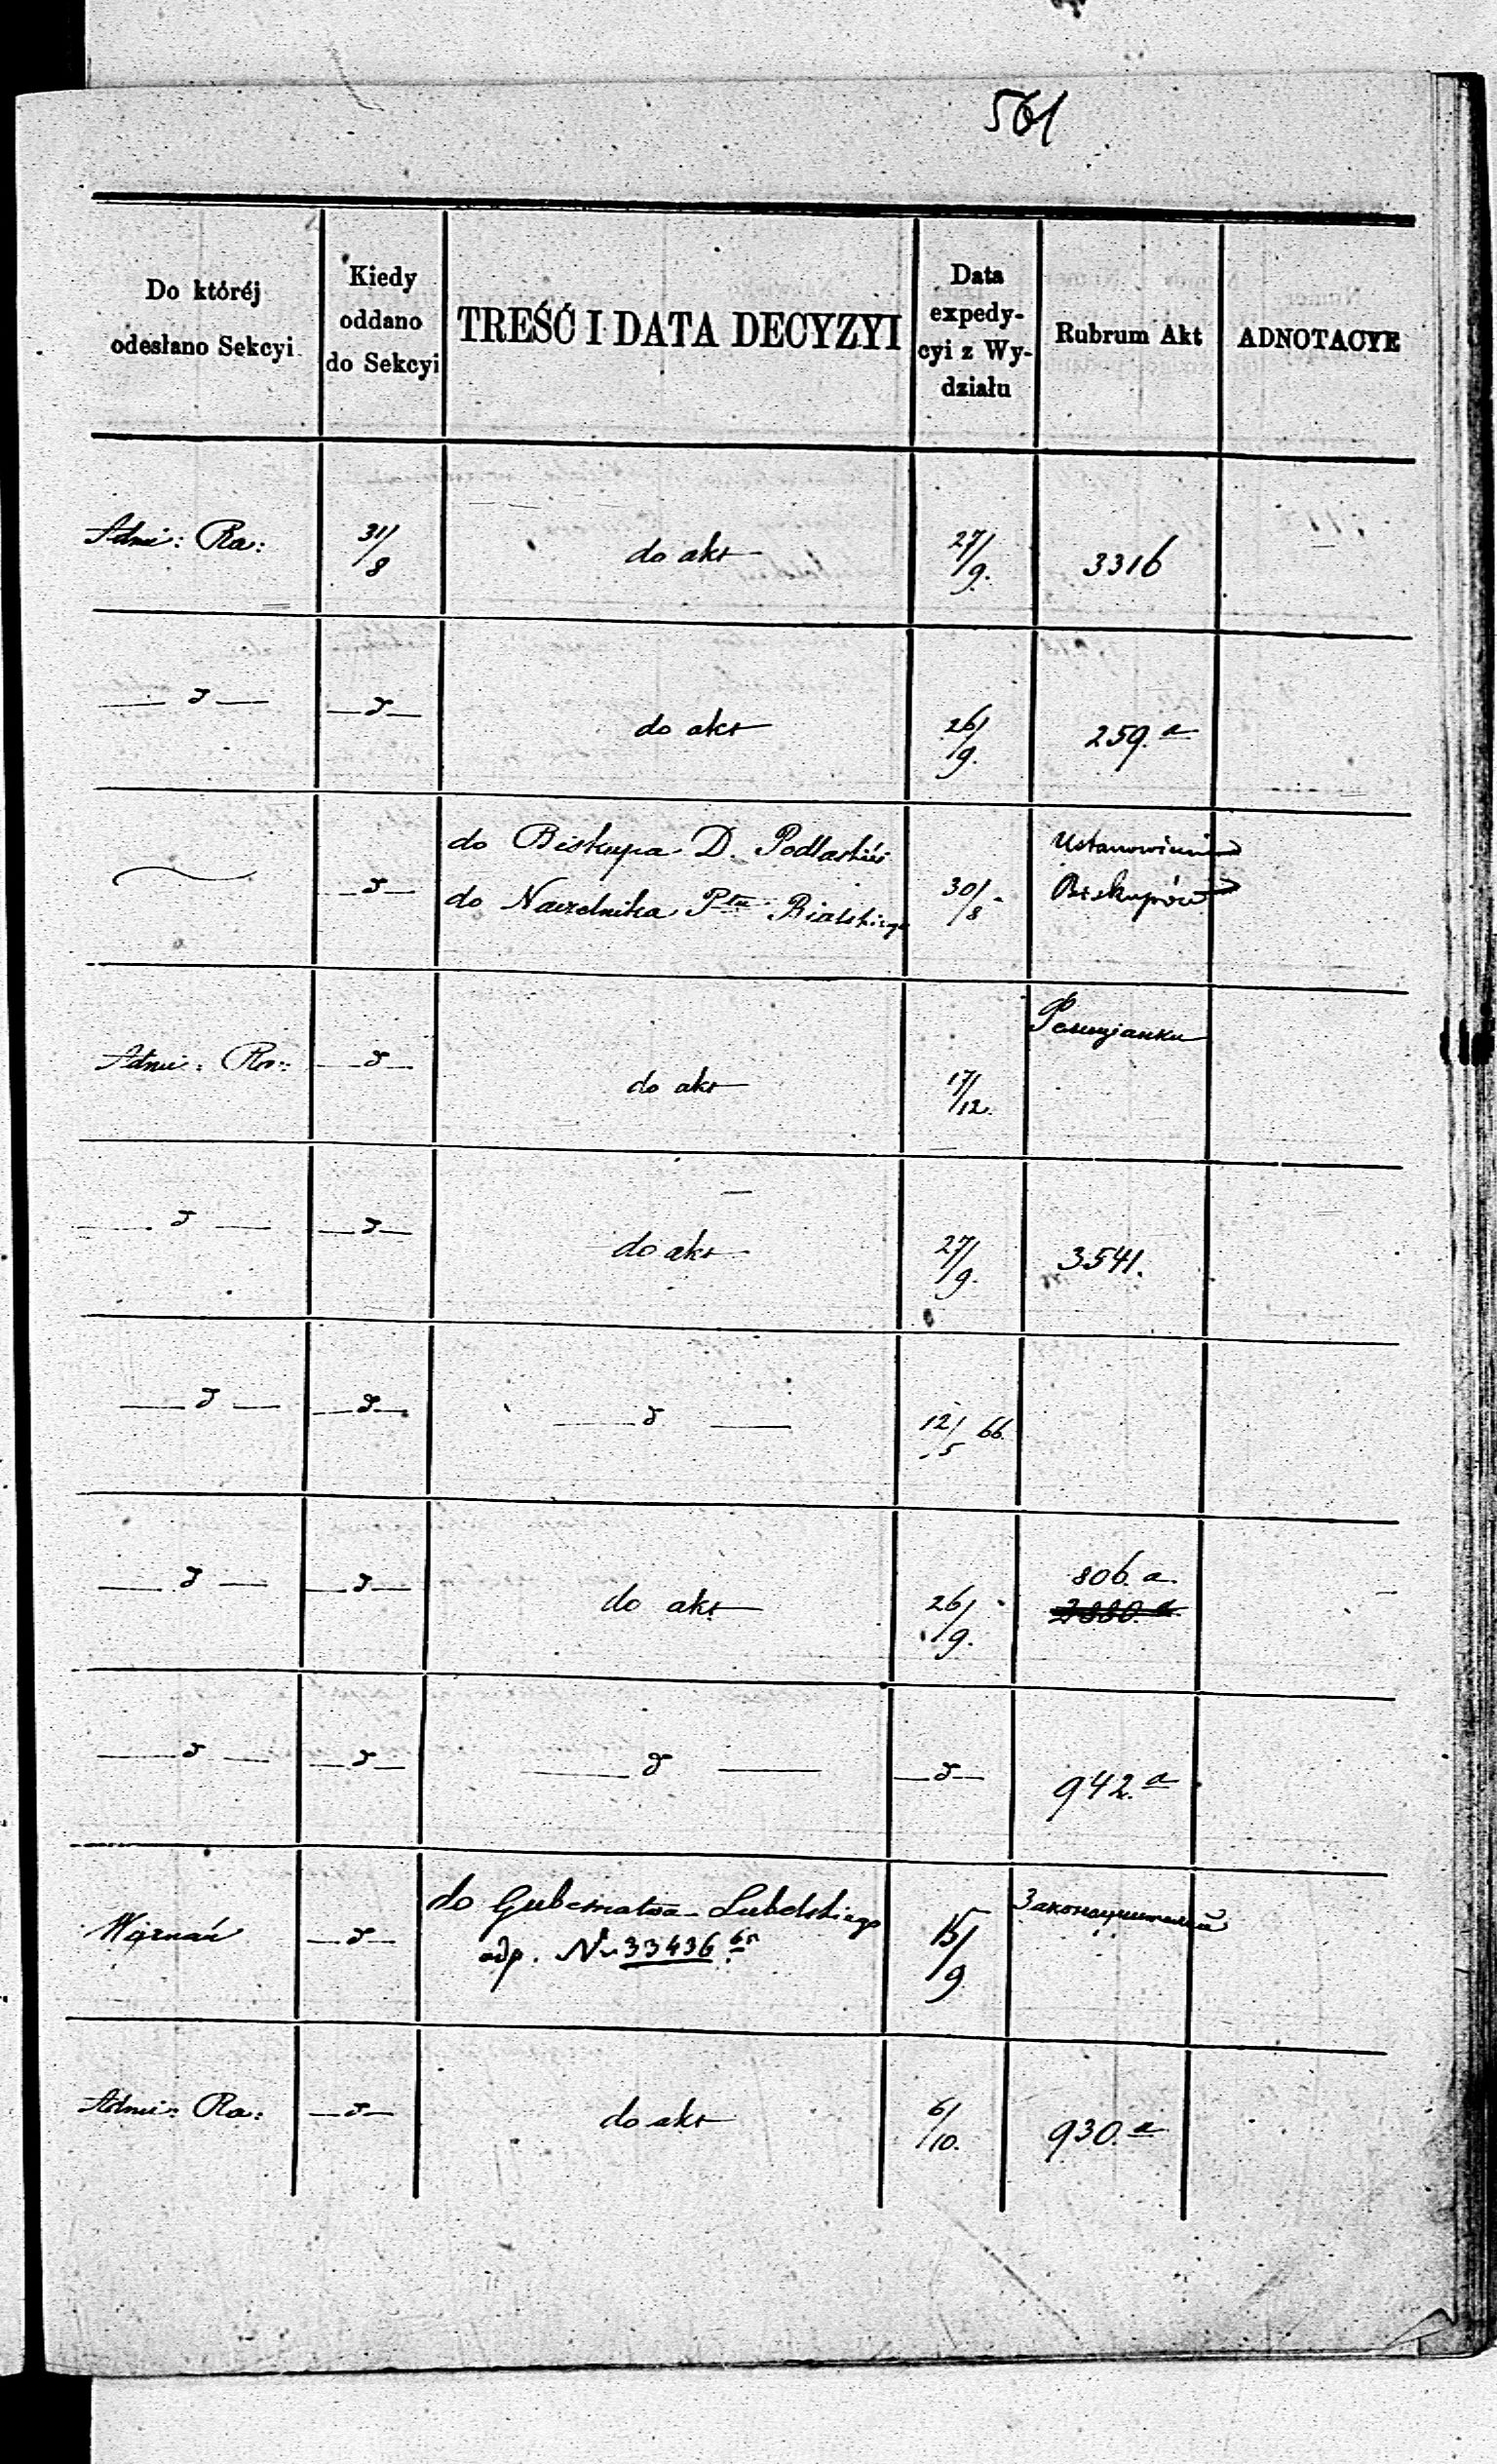 561
Do któréj
odesłano Sekcyi
Kiedy
oddano
do Sekcyi
TREŚĆ I DATA DECYZYI
Data
expedy-
cyi z Wy-
działu
Rubrum Akt
ADNOTACYE
Admi: Ra:
31/8
do akt
27/9.
3316
— d —
— d —
do akt
26/9.
259.a
— d —
do Biskupa D. Podlaskiéj
do Naczelnika Ptu Bialskiego
30/8
Ustanowienie
Biskupów
Admi: Ra:
— d —
do akt
17/12.
— d —
— d —
do akt
27/9.
3541.
— d —
— d —
— d —
12/5 66.
— d —
— d —
do akt
26/9.
806.a.
— d —
— d —
— d —
— d —
942.a
— d —
do Gubernatora Lubelskiego
odp. N 33436
15/9
Admi: Ra:
— d —
do akt
6/10.
930.a